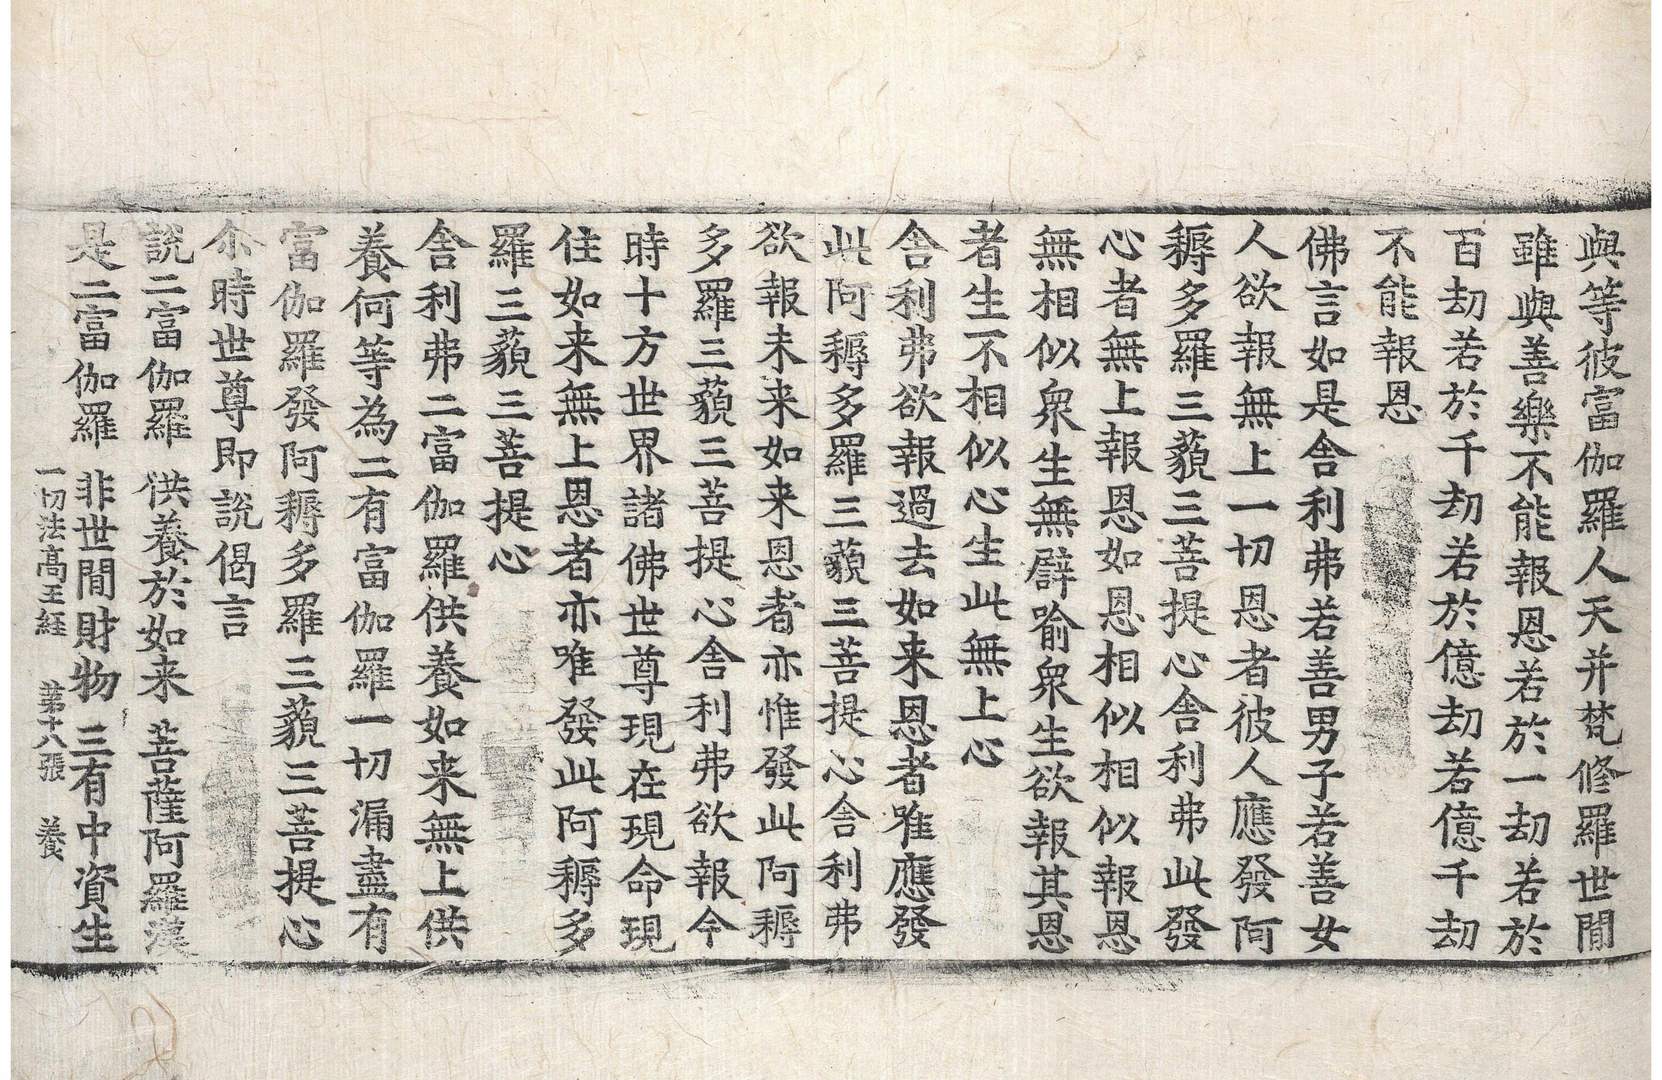 與等彼富伽羅人天并梵修羅世間
雖與善樂不能報恩若於一劫若於
百劫若於千劫若於億劫若億千劫
不能報恩
佛言如是舍利弗若善男子若善女
人欲報無上一切恩者彼人應發阿
耨多羅三藐三菩提心舍利弗此發
心者無上報恩如恩相似相似報恩
無相似眾生無譬喻眾生欲報其恩
者生不相似心生此無上心
舍利弗欲報過去如来恩者唯應發
此阿耨多羅三藐三菩提心舍利弗
欲報未来如来恩者亦惟發此阿耨
多羅三藐三菩提心舍利弗欲報今
時十方世界諸佛世尊現在現命現
住如来無上恩者亦唯發此阿耨多
羅三藐三菩提心
舍利弗二富伽羅供養如来無上供
養何等為二有富伽羅一切漏盡有
富伽羅發阿耨多羅三藐三菩提心
尒時世尊即說偈言
說二富伽羅 供養於如来 菩薩阿羅漢
是二富伽羅 非世間財物 三有中資生
一切法高王経 第十八張 養